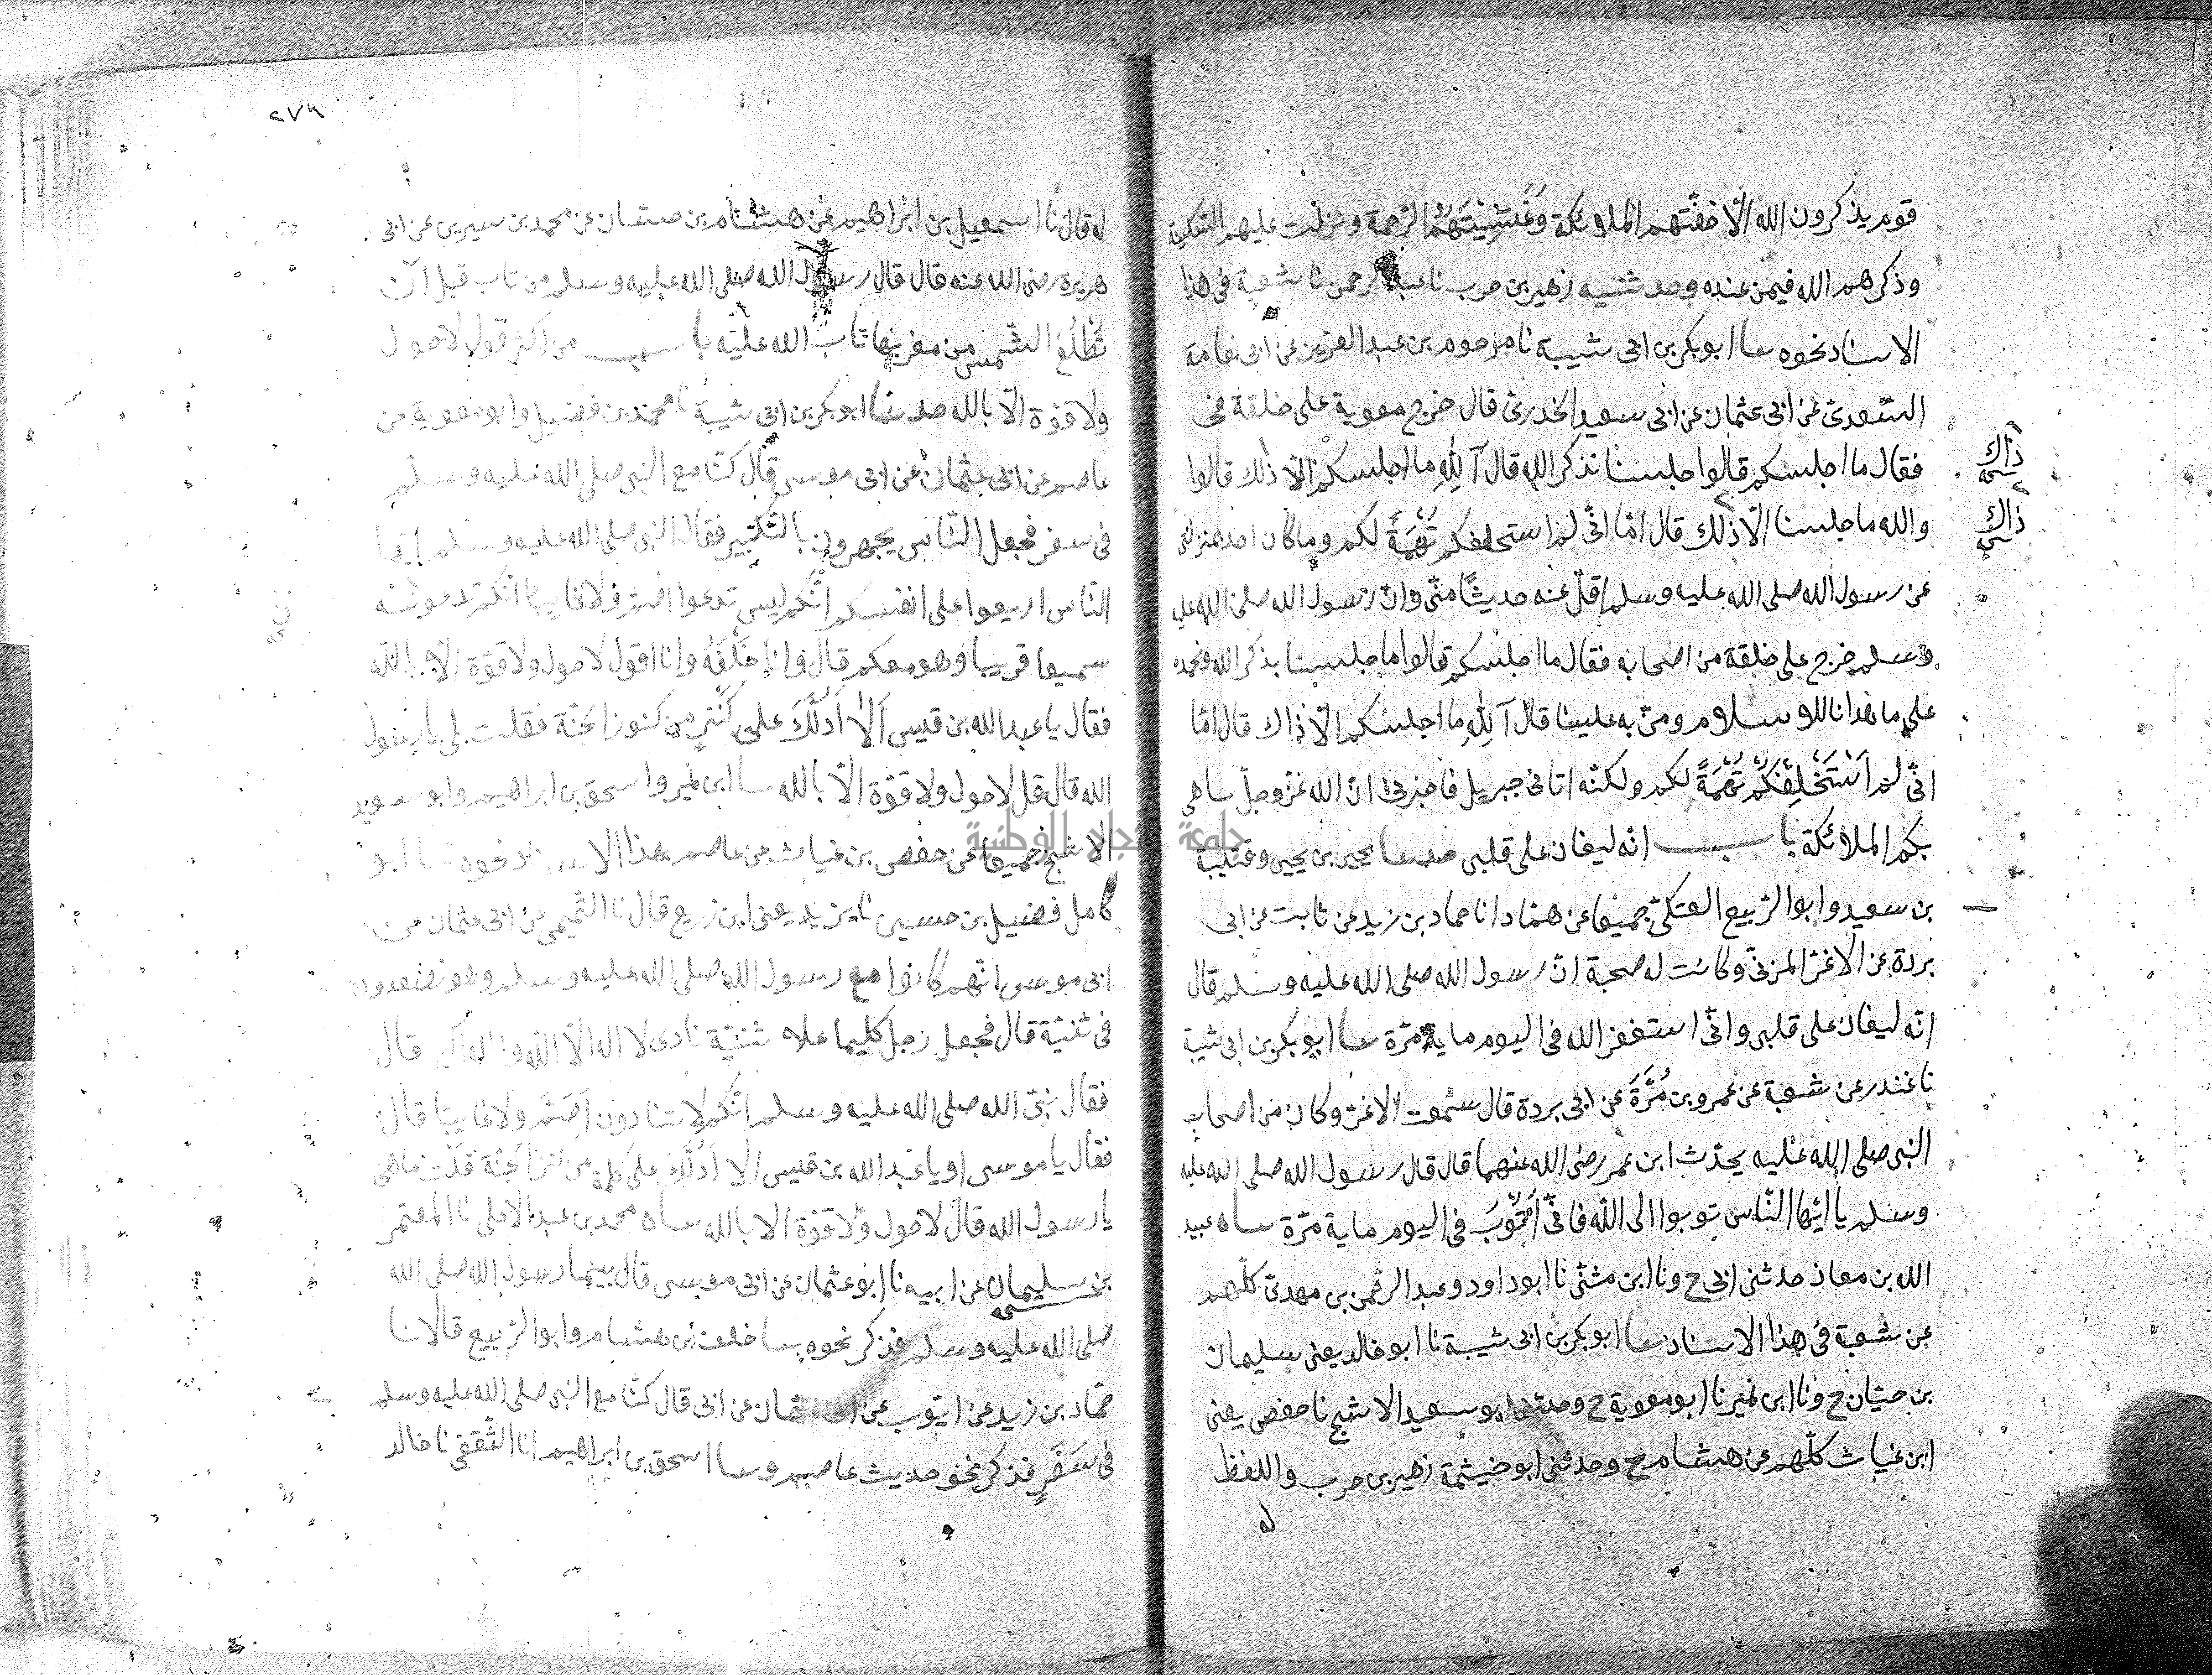 قوم يذكرون الله الّا حفّتهم الملائكة وغشيتهم الرحمة ونزلت عليهم السكينة
وذكرهم الله فيمن عنده وحدثنيه زهير بن حرب نا عبد الرحمن نا شعبة فى هذا
الاسناد نحوه حدثنا ابو بكر بن ابى شيبة نا مرحوم بن عبد العزيز عن ابى نعامة
السّعدىّ عن ابى عثمان عن ابى سعيد الخدرىّ قال خرج معوية على حلقة فى
فقال ما اجلسكم قالوا جلسنا نذكر الله قال آللّٰهِ ما اجلسكم الّا ذلك قالوا
والله ما جلسنا الّا ذلك قال امّا انّى لم استحلفكم تُهَمَةً لكم وما كان احد بمنزلتى
عن رسول الله صلى الله عليه وسلم اقلّ عنه حديثًا منّى وانّ رسول الله صلى الله عليه
وسلم خرج على حلقة من اصحابه فقال ما اجلسكم قالوا ما جلسنا بذكر الله ونحمده
على ما هدانا للاسلام ومنّ به علينا قال آللّٰهِ ما اجلسكم الّا ذاك قال امّا
انّى لم اَسْتَحْلِفْكُمْ تُهَمَةً لكم ولكنّه اتانى جبريل فاخبرنى انّ الله عزّ وجلّ يباهى
بكم الملائكة باب انّه ليغان على قلبى حدثنا يحيى بن يحيى وقتيبة
بن سعيد وابو الرّبيع العتكىّ جميعا عن حماد انا حماد بن زيد عن ثابت عن ابى
بردة عن الاغرّ المزنىّ وكانت له صحبة انّ رسول الله صلى الله عليه وسلم قال
انّه ليغان على قلبى وانّى استغفر الله فى اليوم ماية مرّة حدثنا ابو بكر بن ابى شيبة
نا غندر عن شعبة عن عمرو بن مُرَّةَ عن ابى بردة قال سمعت الاغرّ وكان من اصحاب
النبى صلى الله عليه يحدّث ابن عمر رضى الله عنهما قال قال رسول الله صلى الله عليه
وسلم يا ايّها النّاس توبوا الى اللّه فانّى اَتُوبُ فى اليوم ماية مرّة حدثنا عبيد
الله بن معاذ حدثنى ابى ح ونا ابن مثنّى نا ابو داود وعبد الرحمن بن مهدىّ كلّهم
عن شعبة فى هذا الاسناد حدثنا ابو بكر بن ابى شيبة نا ابو خالد يعنى سليمان
بن حيّان ح ونا ابن نمير نا ابو معوية ح وحدثنى ابو سعيد الاشجّ نا حفص يعنى
ابن غياث كلّهم عن هشام ح وحدثنى ابو خيثمة زهير بن حرب واللفظ
له
ذاك
ذاك
٢٧٨
له قال نا اسمعيل بن ابراهيم عن هشام بن حسّان عن محمد بن سيرين عن ابى
هريرة رضى الله عنه قال قال رسول الله صلى الله عليه وسلم من تاب قبل ان
تَطْلُعَ الشّمس من مغربها تاب الله عليه باب من اكثر قول لا حول
ولا قوّة الّا بالله حدثنا ابو بكر بن ابى شيبة نا محمد بن فضيل وابو معوية عن
عاصم عن ابى عثمان عن ابى موسى قال كنّا مع النبى صلى الله عليه وسلّم
فى سفر فجعل النّاس يجهرون بالتّكبير فقال النبى صلى الله عليه وسلم ايّها
النّاس اربعوا على انفسكم انّكم ليس تدعوا اصمّ ولا غايبا انّكم تدعونه
سميعا قريبا وهو معكم قال وانا خَلْفَهُ وانا اقول لا حول ولا قوّة الّا باللّه
فقال يا عبد الله بن قيس اَلَا اَدُلُّكَ على كَنْزٍ من كنوز الجنّة فقلت بلى يا رسول
الله قال قل لا حول ولا قوّة الّا بالله حدثنا ابن نمير واسحق بن ابراهيم وابو سعيد
الاشجّ جميعا عن حفص بن غياث عن عاصم بهذا الاسناد نحوه حدثنا ابو
كامل فضيل بن حسين نا يزيد يعنى ابن زريع قال نا التّيمى عن ابى عثمان عن
ابى موسى انّهم كانوا مع رسول الله صلى الله عليه وسلم وهو يصعدون
فى ثنيّة قال فجعل رجل كليما علا ثنيّة نادى لا اله الّا اللّه والله اكبر قال
فقال نبىّ الله صلى الله عليه وسلم انّكم لا تنادون اَصَمَّ ولا غايبًا قال
فقال يا موسى او يا عبد الله بن قيس الا اَدُلُّكَ على كلمة من كنز الجنّة قلت ما هى
يا رسول الله قال لا حول ولا قوّة الا بالله حدثنا محمد بن عبد الاعلى نا المعتمر
بن سليمان عن ابيه نا ابو عثمان عن ابى موسى قال بينما رسول الله صلى الله
صلى الله عليه وسلم فذكر نحوه حدثنا خلف بن هشام وابو الرّبيع قالا نا
حمّاد بن زيد عن ايّوب عن ابى عثمان عن ابى قال كنّا مع النبى صلى الله عليه وسلم
فى سَفَرٍ فذكر نحو حديث عاصم وحدثنا اسحق بن ابراهيم انا الثّقفى نا خالد
جامعة النجاح الوطنية